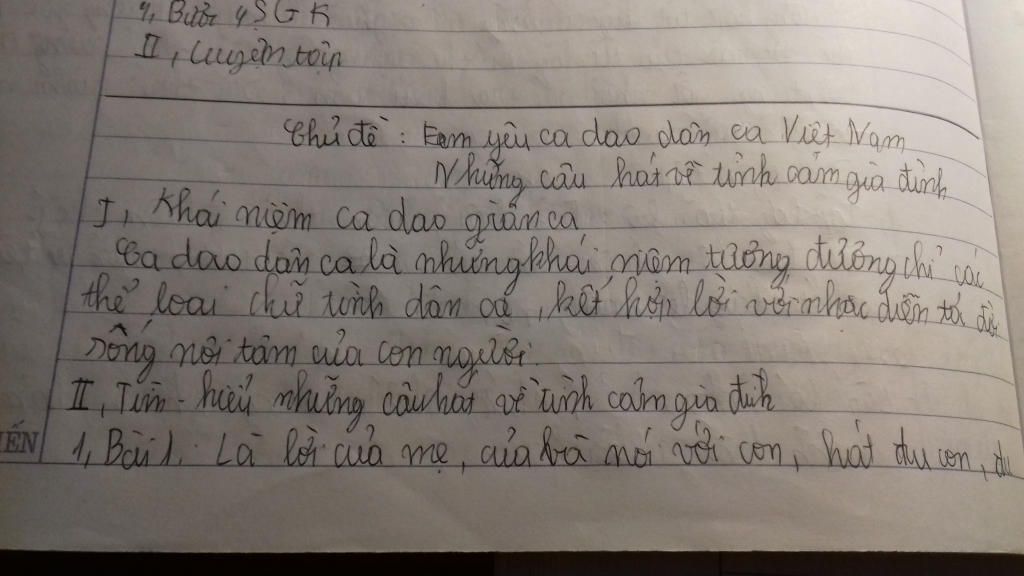 4, Bước 4 SGK
II, Luyện tập
Chủ đề : Em yêu ca dao dân ca Việt Nam
Những câu hát về tình cảm gia đình
I, Khái niệm ca dao giân ca
Ca dao dân ca là những khái niệm tương đương chỉ các
thể loại chữ tình dân ca , kết hợp lời với nhạc diễn tả đời
sống nội tâm của con người.
II, Tìm - hiểu những câu hát về tình cảm gia đình
IẾN
1, Bài 1. Là lời của mẹ, của bà nói với con, hát du con, du